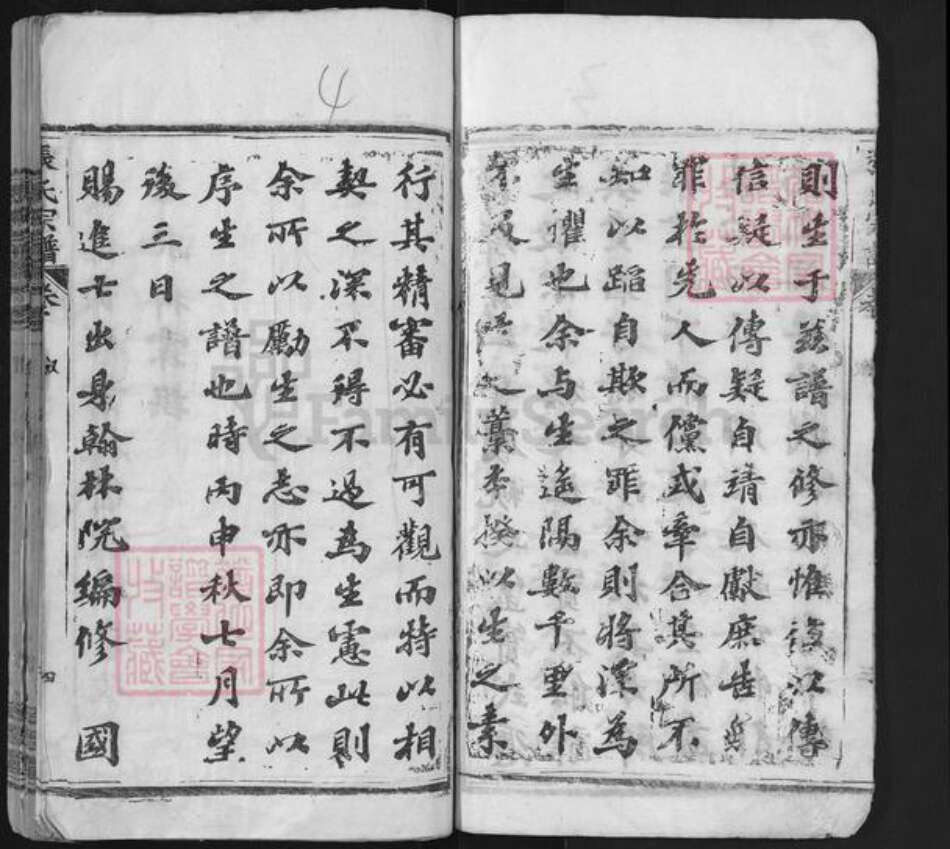 則生于茲譜之修亦惟信以傳
信疑以傳疑自靖自獻庶無
罪於先人而儻或牽合其所不
知以蹈自欺之罪余則將深為
生懼也余与生遙隔數千里外
未及見之藁本揆以生之素
行其精審必有可觀而特以相
契之深不得不過為生慮此則
余所以勵生之志亦即余所以
序生之譜也時丙申秋七月望
後三日
賜進士出身翰林院編修 國
張氏宗譜 卷 敘 四
4
FamilySearch